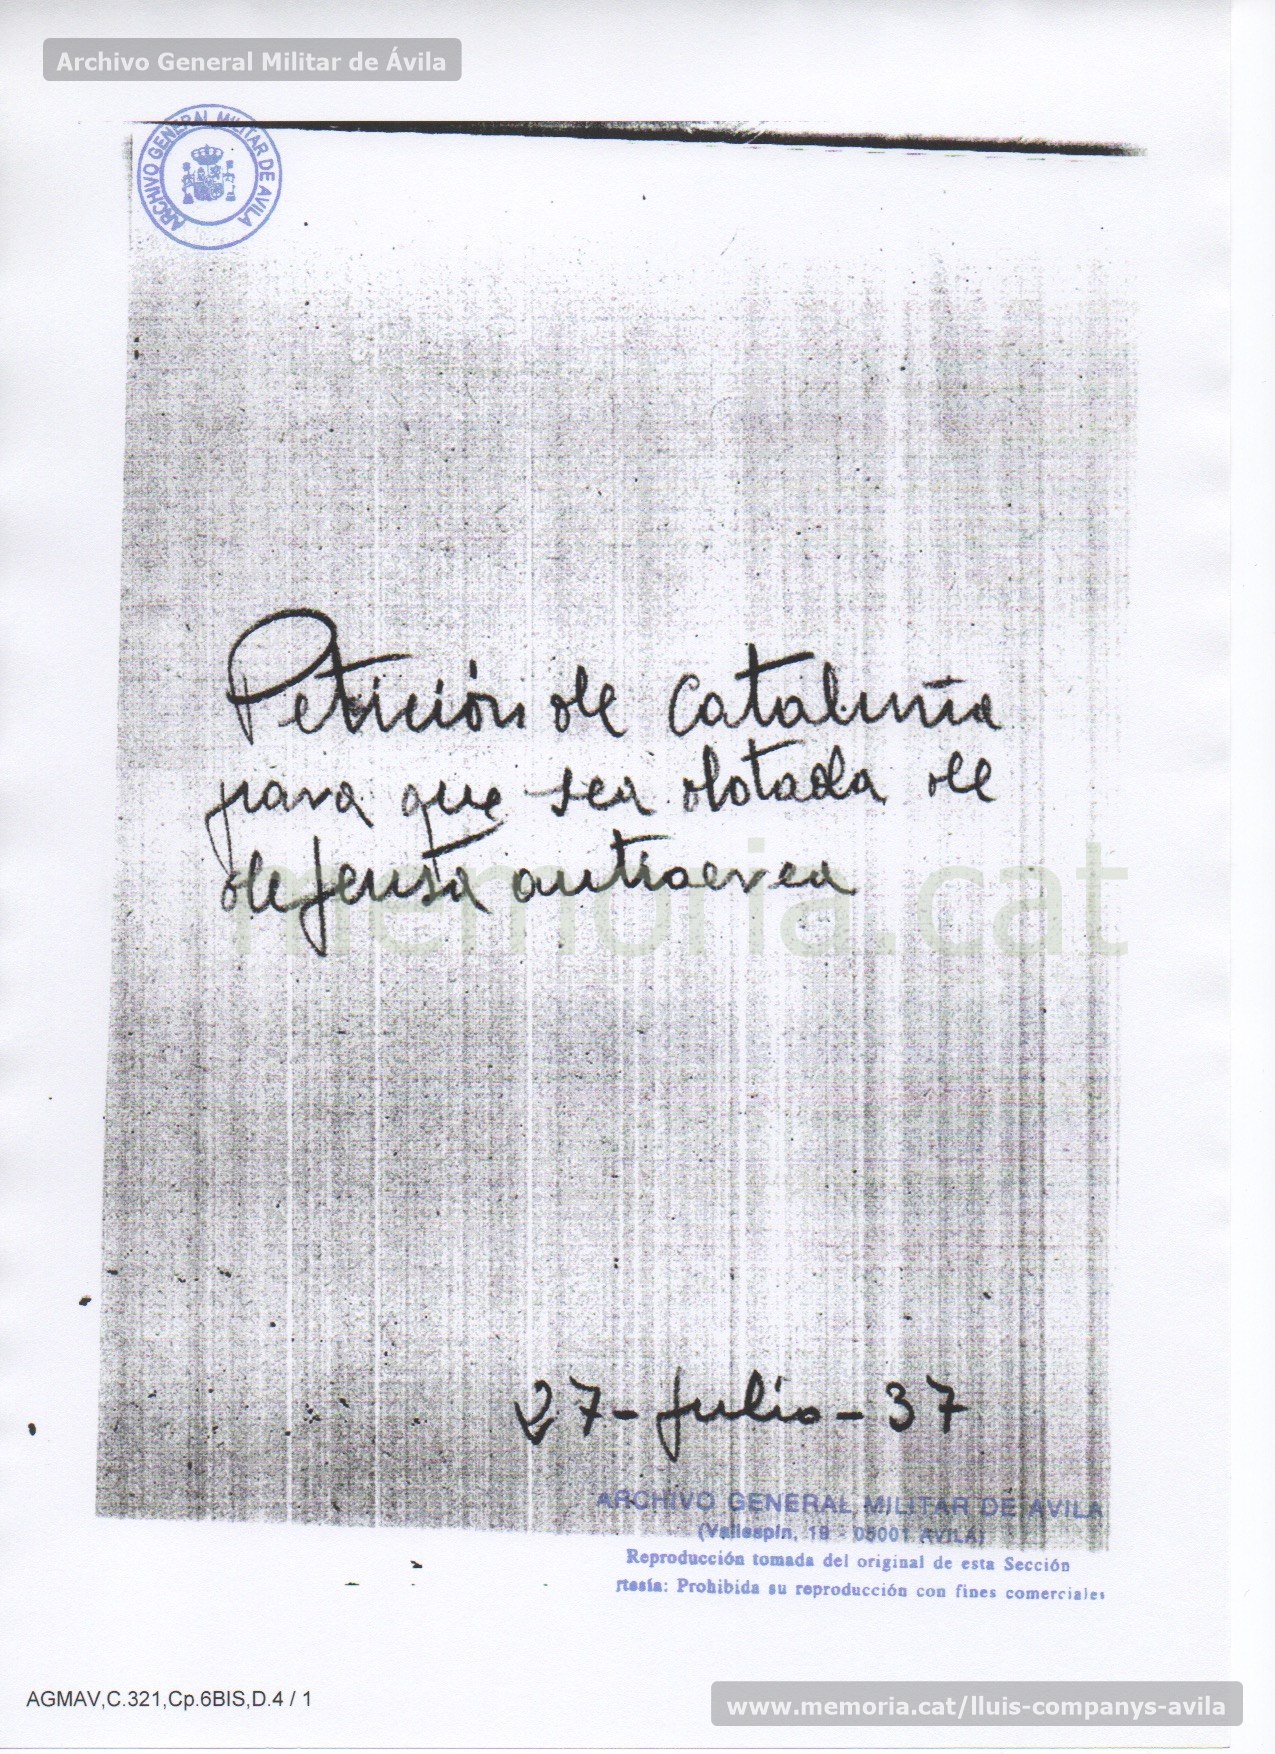 Archivo General Militar de Ávila
ARCHIVO GENERAL MILITAR DE AVILA
Petición de Cataluña
para que sea dotada de
defensa antiaerea
memoria.cat
27-Julio-37
ARCHIVO GENERAL MILITAR DE AVILA
(Vallespín, 19 - 05001 AVILA)
Reproducción tomada del original de esta Sección
rtesía: Prohibida su reproducción con fines comerciales
AGMAV,C.321,Cp.6BIS,D.4 / 1
www.memoria.cat/lluis-companys-avila